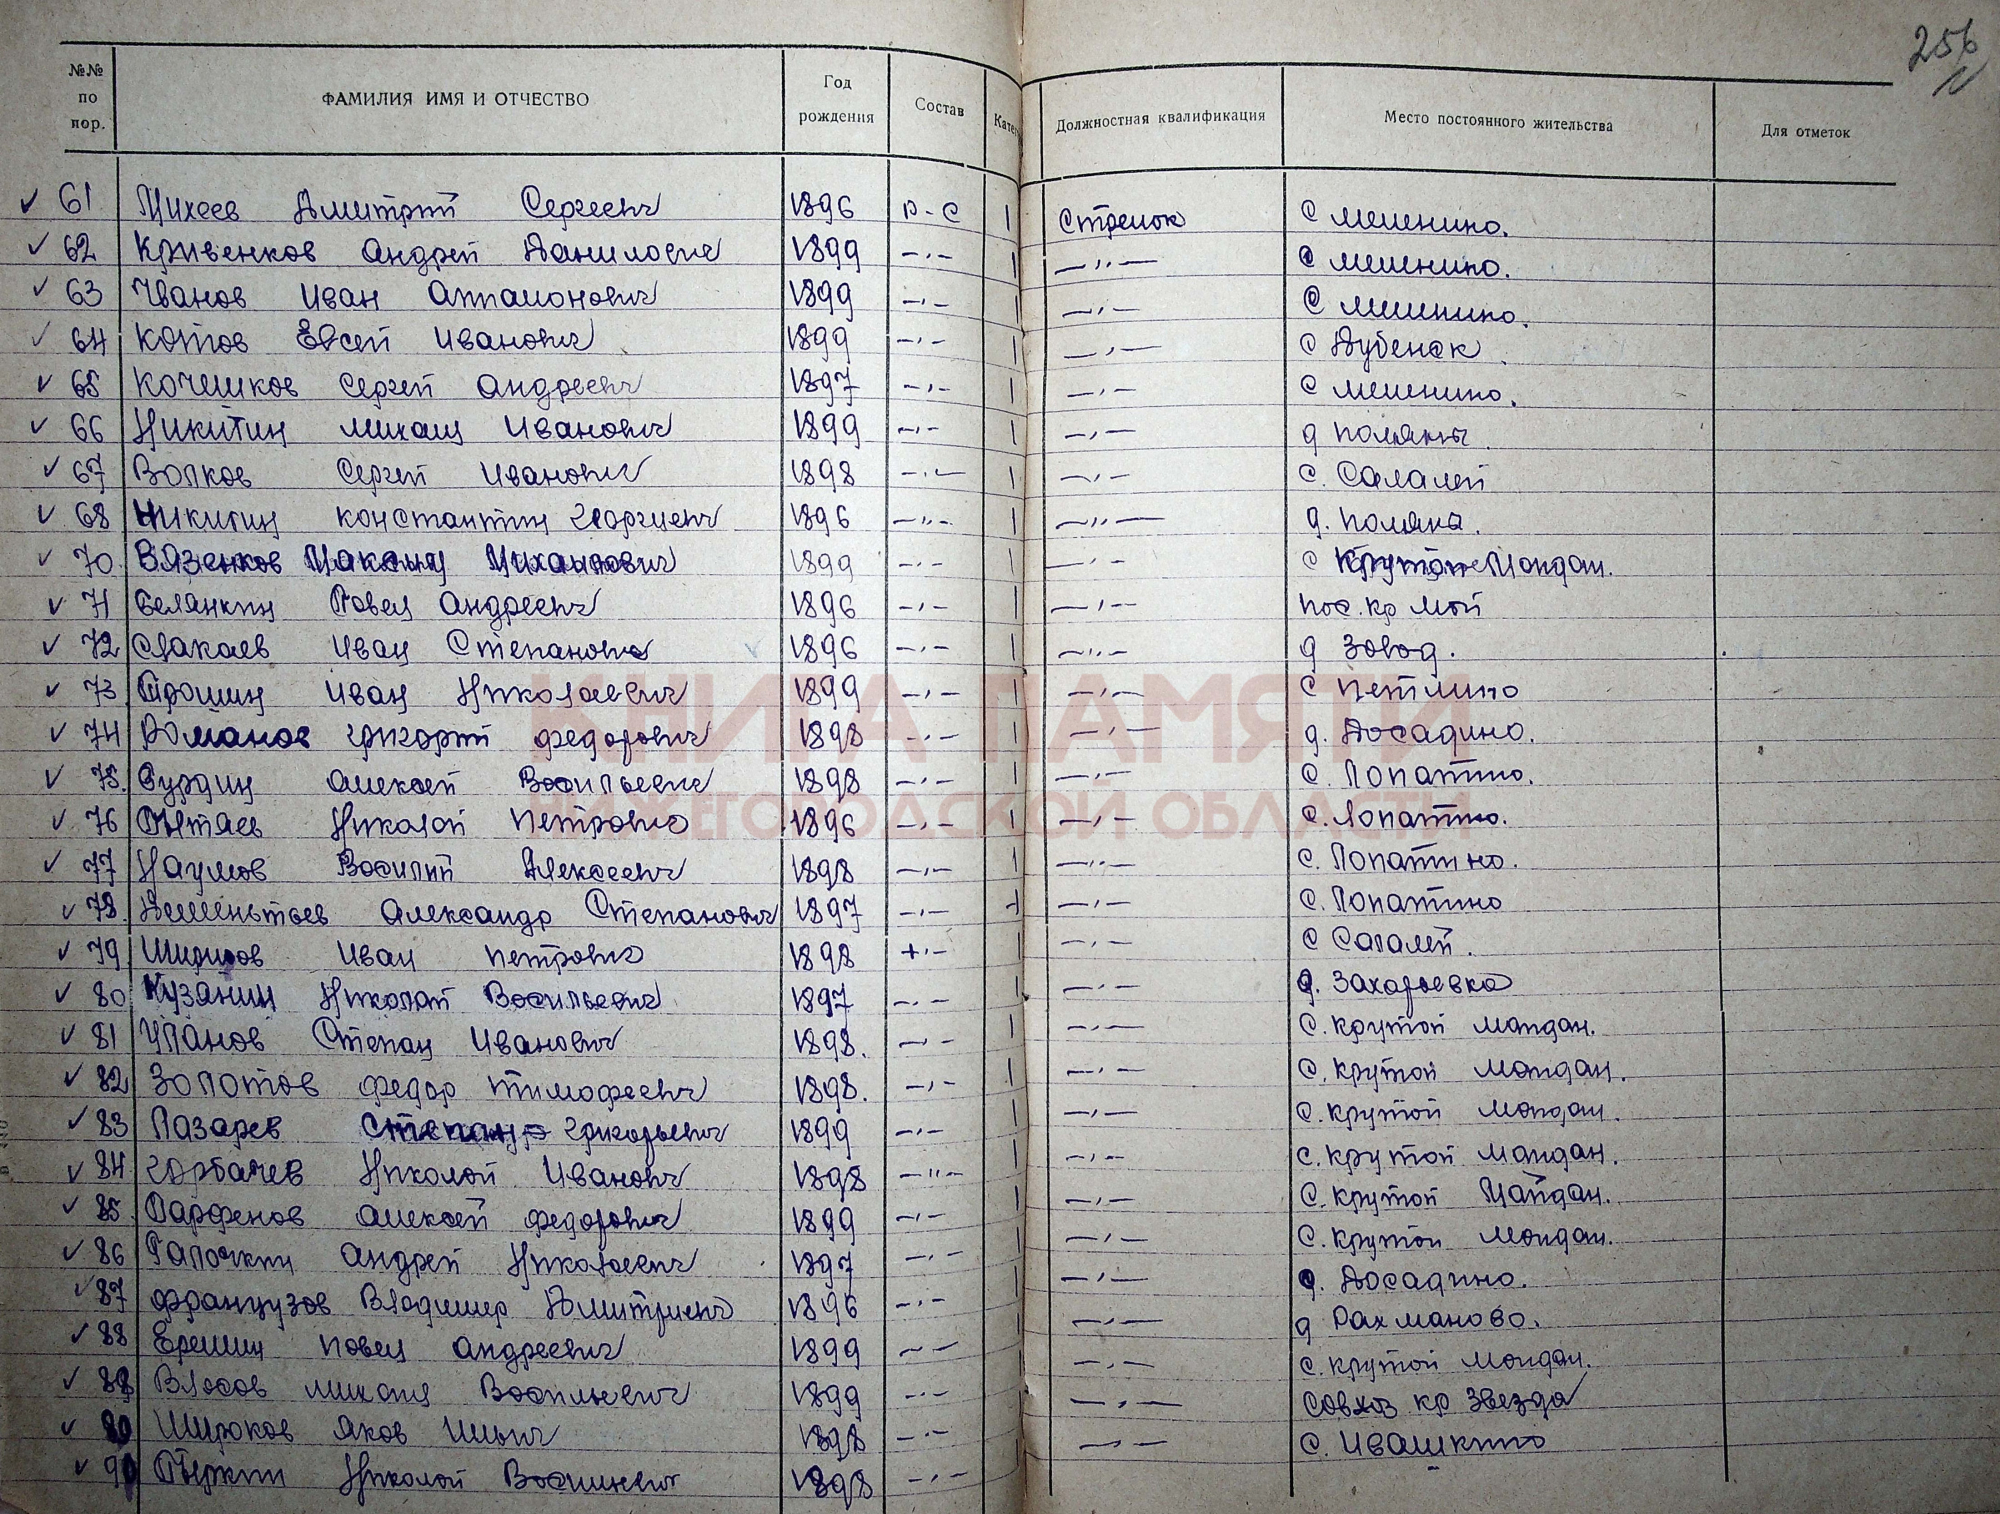 256
№№ по пор. ФАМИЛИЯ ИМЯ И ОТЧЕСТВО Год рождения Состав Катег Должностная квалификация Место постоянного жительства Для отметок
61 Михеев Дмитрий Сергеевич 1896 р-с 1 Стрелок с Меленино.
62 Кривенков Андрей Данилович 1899 —,— 1 —,,— с Меленино.
63 Иванов Иван 1899 —,— 1 —,— с Меленино.
64 Котов Евсей Иванович 1899 —,— 1 —,— с Дубенск
65 Кочешков Сергей Андреевич 1897 —,— 1 —,— с Меленино.
66 Никитин Михаил Иванович 1899 —,— 1 —,— д Поляны
67 Волков Сергей Иванович 1898 —,— 1 —,— с. Салалей
68 Никитин Константин Георгиевич 1896 —,,— 1 —,,— д. Поляна.
70 Вязенков Максим Михайлович 1899 —,— 1 —,— с Крутой Майдан.
71 Белянкин Павел Андреевич 1896 —,— 1 —,— пос. кр Май
72 Иван Степанович 1896 —,— 1 —,,— д Завод.
73 Трошин Иван Николаевич 1899 —,— 1 —,— с Петлино
74 Романов Григорий Федорович 1898 —,— 1 —,— д. Досадино.
75. Сурдин Алексей Васильевич 1898 —,— 1 —,— с. Лопатино.
76 Пытаев Николай Петрович 1896 —,— 1 —,— с. Лопатино.
77 Наумов Василий Алексеевич 1898 —,— 1 —,— с. Лопатино.
78. Дементьев Александр Степанович 1897 —,— 1 —,— с. Лопатино
79 Иван Петрович 1898 —,— 1 —,— с Салалей.
80 Кузанин Николай Васильевич 1897 —,— 1 —,— д. Захарьевка
81 Уланов Степан Иванович 1898. —,— 1 —,— с. Крутой Майдан.
82 Золотов Федор Тимофеевич 1898. —,— 1 —,— с. Крутой Майдан.
83 Лазарев Степан Григорьевич 1899 —,— 1 —,— с. Крутой Майдан.
84 Горбачев Николай Иванович 1898 —,,— 1 —,— с. Крутой Майдан.
85 Парфенов Алексей Федорович 1899 —,— 1 —,— с. Крутой Майдан.
86 Галочкин Андрей Николаевич 1897 —,— 1 —,— с. Крутой Майдан.
87 Французов Владимир Дмитриевич 1896 —,— 1 —,— д. Досадино.
88 Еремин Павел Андреевич 1899 —,— 1 —,— д Рахманово.
89 Власов Михаил Васильевич 1899 —,— 1 —,— с. Крутой Майдан.
Широков Яков Ильич 1898 —,— 1 —,— Совхоз кр Звезда
Николай Васильевич 1898 —,— —,— с. Ивашкино
КНИГА ПАМЯТИ
НИЖЕГОРОДСКОЙ ОБЛАСТИ